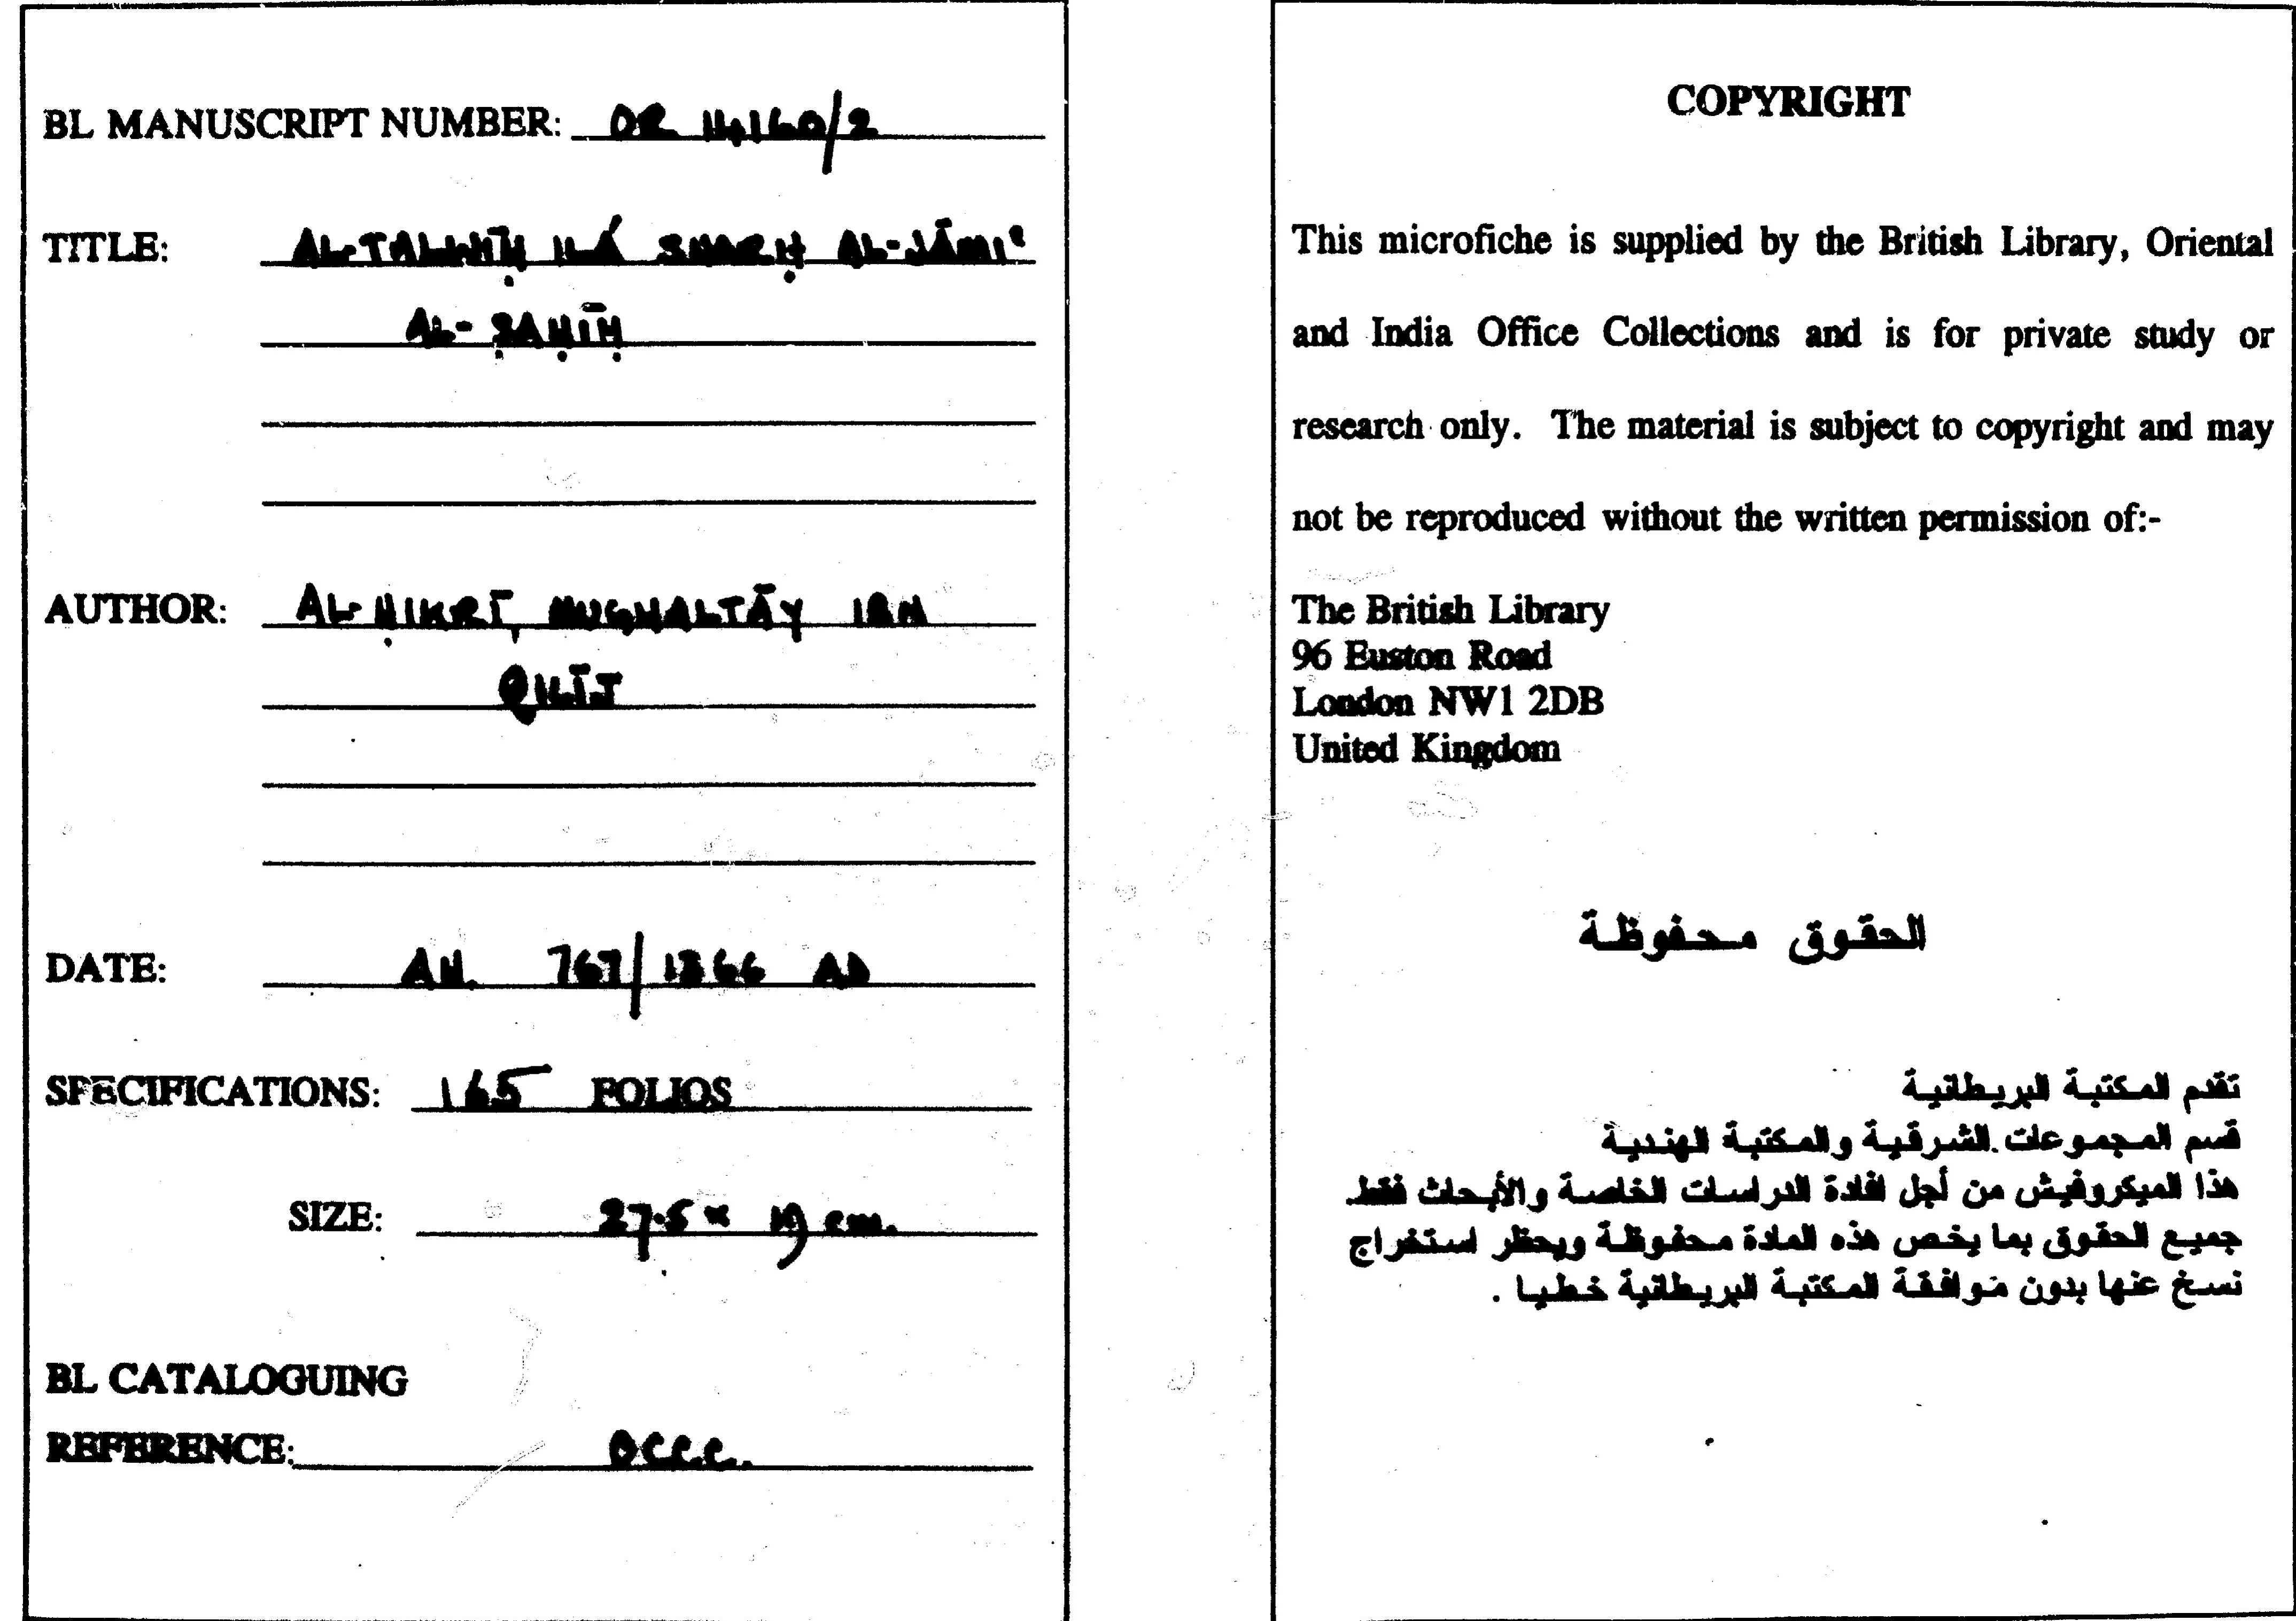 BL MANUSCRIPT NUMBER: OR 14160/2
TITLE: AL-TALWĪḤ ILÁ SHARḤ AL-JĀMIʿ
AL-ṢAḤĪḤ
AUTHOR: AL-ḤIKRĪ, MUGHALTĀY IBN
QILĪJ
DATE: AH. 767/1366 AD
SPECIFICATIONS: 165 FOLIOS
SIZE: 27.5 × 19 cm.
BL CATALOGUING
REFERENCE: OCCC.
COPYRIGHT
This microfiche is supplied by the British Library, Oriental
and India Office Collections and is for private study or
research only. The material is subject to copyright and may
not be reproduced without the written permission of:-
The British Library
96 Euston Road
London NW1 2DB
United Kingdom
الحقوق محفوظة
تقدم المكتبة البريطانية
قسم المجموعات الشرقية والمكتبة الهندية
هذا الميكروفيش من أجل افادة الدراسات الخاصة والأبحاث فقط.
جميع الحقوق بما يخص هذه المادة محفوظة ويحظر استخراج
نسخ عنها بدون موافقة المكتبة البريطانية خطيا .